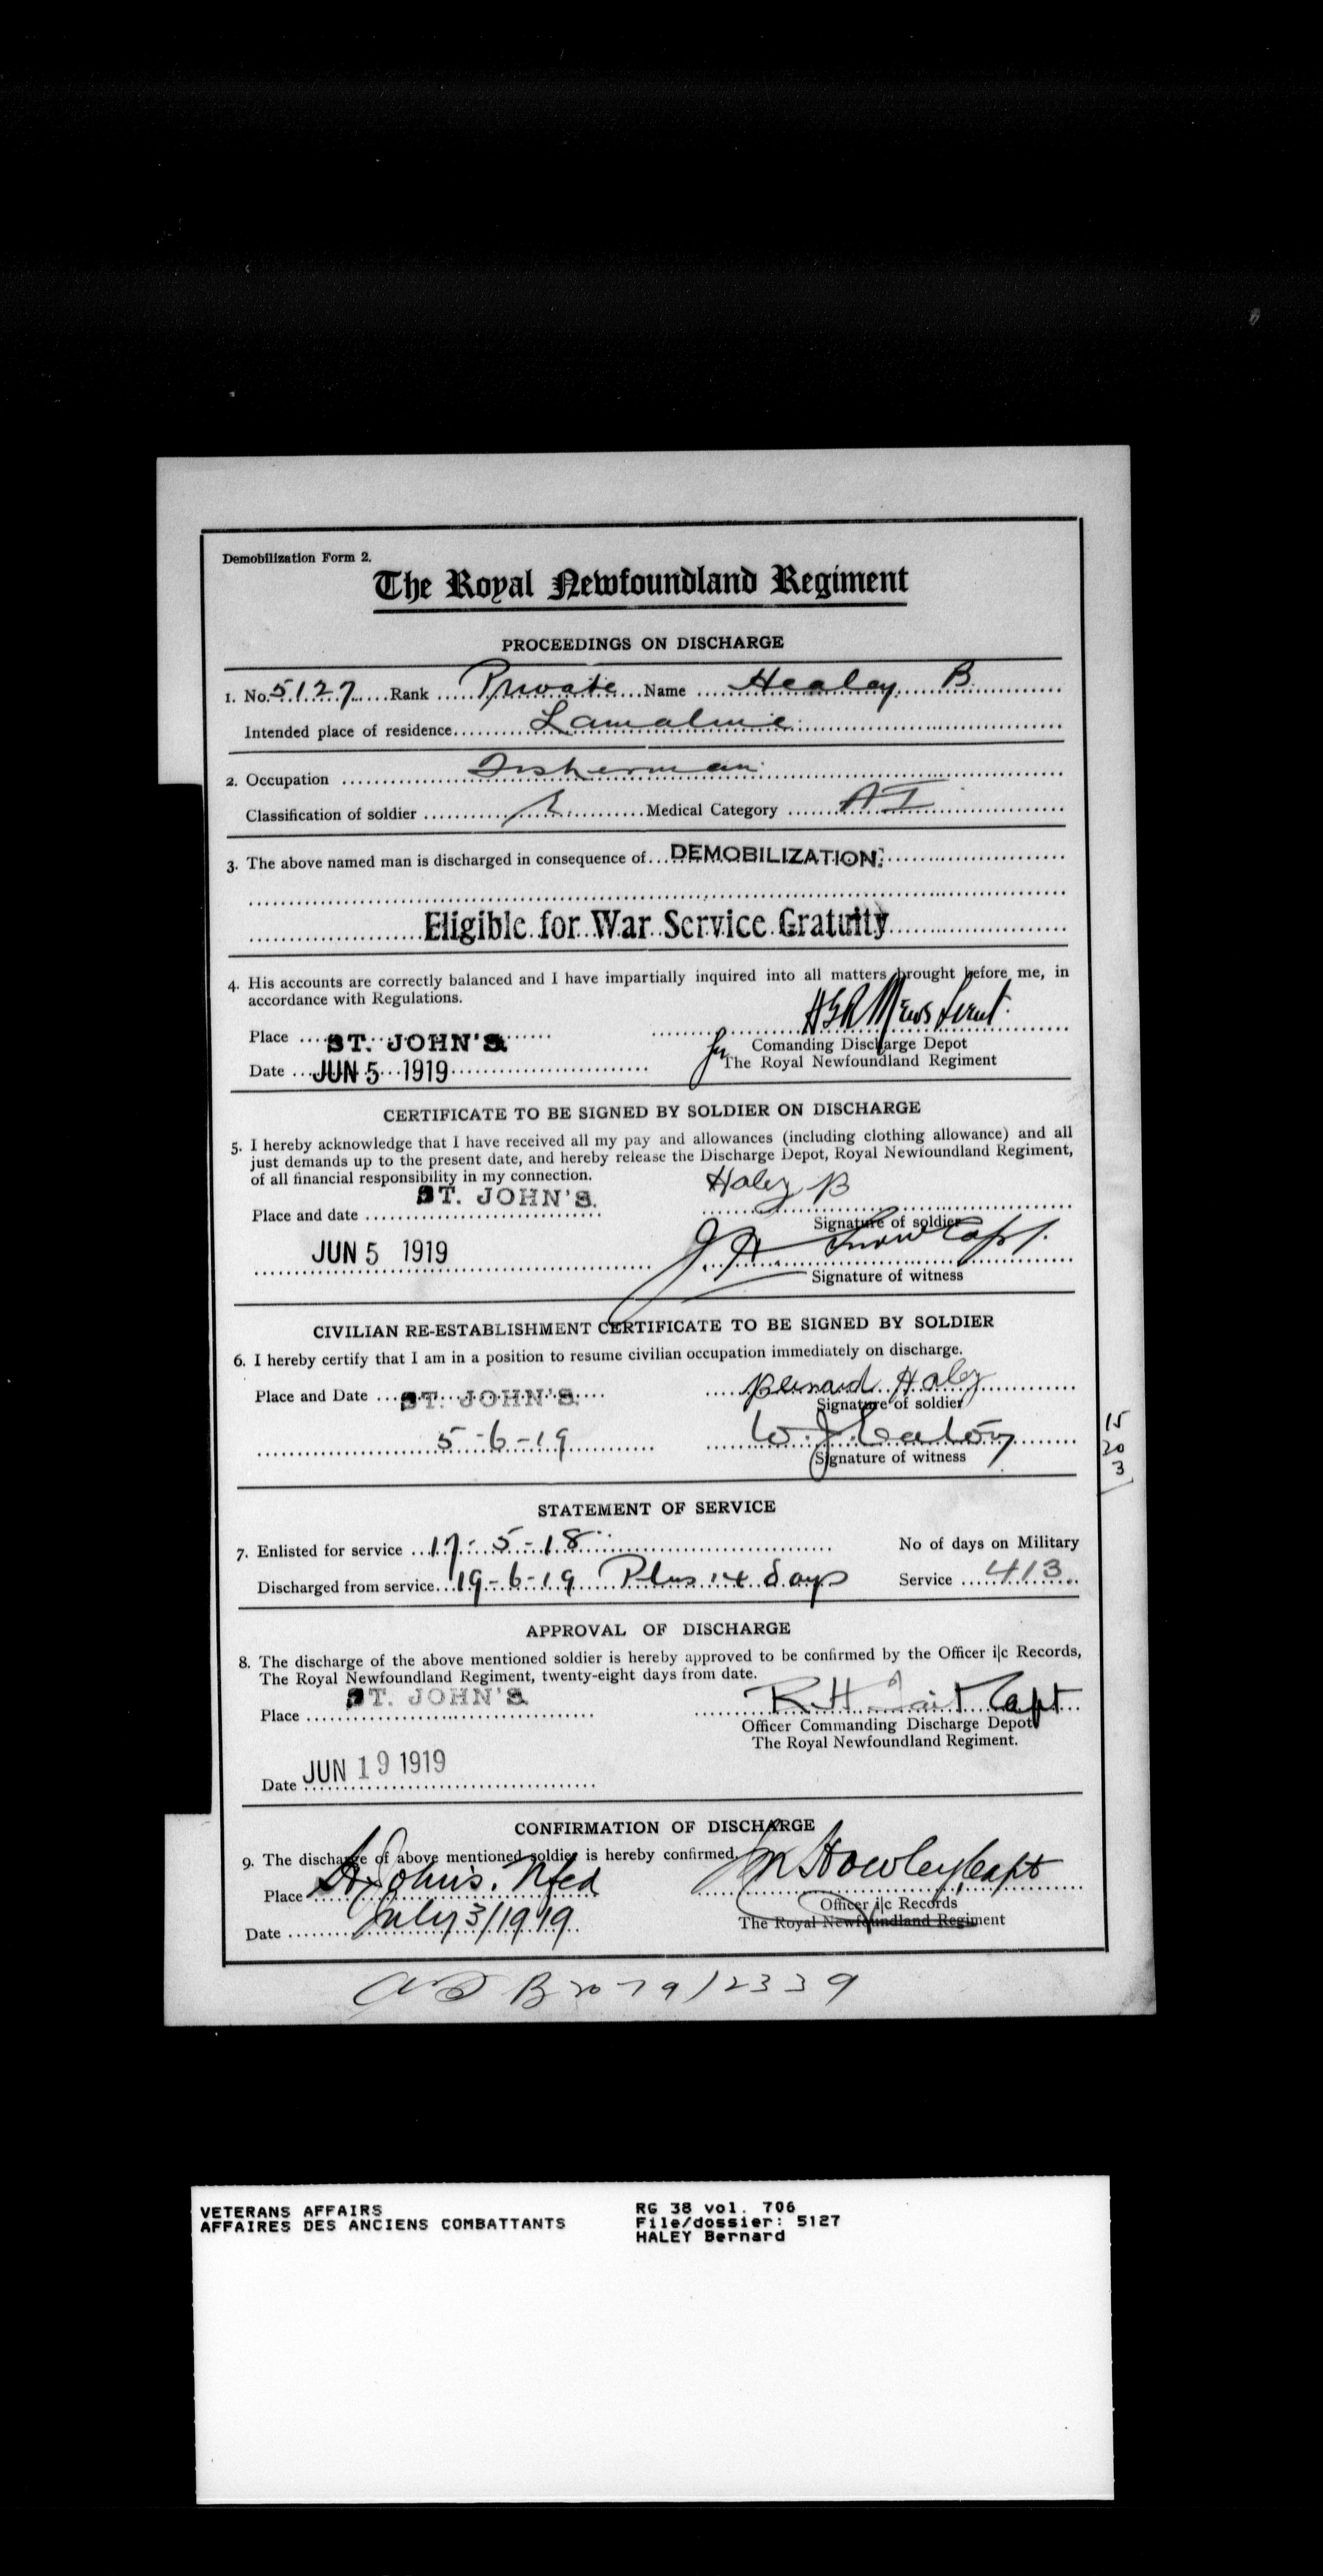 Demobilization Form 2.
The Royal Newfoundland Regiment
PROCEEDINGS ON DISCHARGE
1. No. 5127 Rank Private Name Healey B.
Intended place of residence Lamaline
2. Occupation Fisherman
Classification of soldier Medical Category A I
3. The above named man is discharged in consequence of DEMOBILIZATION.
Eligible for War Service Gratuity
4. His accounts are correctly balanced and I have impartially inquired into all matters brought before me, in
accordance with Regulations.
Place ST. JOHN'S. Mews Lieut.
Comanding Discharge Depot
Date JUN 5 1919 for The Royal Newfoundland Regiment
CERTIFICATE TO BE SIGNED BY SOLDIER ON DISCHARGE
5. I hereby acknowledge that I have received all my pay and allowances (including clothing allowance) and all
just demands up to the present date, and hereby release the Discharge Depot, Royal Newfoundland Regiment,
of all financial responsibility in my connection.
Place and date ST. JOHN'S. Haley B
Signature of soldier
JUN 5 1919 J. A. Snow Capt.
Signature of witness
CIVILIAN RE-ESTABLISHMENT CERTIFICATE TO BE SIGNED BY SOLDIER
6. I hereby certify that I am in a position to resume civilian occupation immediately on discharge.
Place and Date ST. JOHN'S. Bernard Haley
Signature of soldier
5-6-19 W. J. Eaton
Signature of witness
15
20
3
STATEMENT OF SERVICE
7. Enlisted for service 17-5-18 No of days on Military
Discharged from service 19-6-19 Plus 14 days Service 413
APPROVAL OF DISCHARGE
8. The discharge of the above mentioned soldier is hereby approved to be confirmed by the Officer i|c Records,
The Royal Newfoundland Regiment, twenty-eight days from date.
Place ST. JOHN'S R H Tait Capt
Officer Commanding Discharge Depot
The Royal Newfoundland Regiment.
Date JUN 19 1919
CONFIRMATION OF DISCHARGE
9. The discharge of above mentioned soldier is hereby confirmed.
Place St John's. Nfld Howley Capt
Officer i|c Records
Date July 3/1919 The Royal Newfoundland Regiment
2339
VETERANS AFFAIRS RG 38 vol. 706
AFFAIRES DES ANCIENS COMBATTANTS File/dossier: 5127
HALEY Bernard